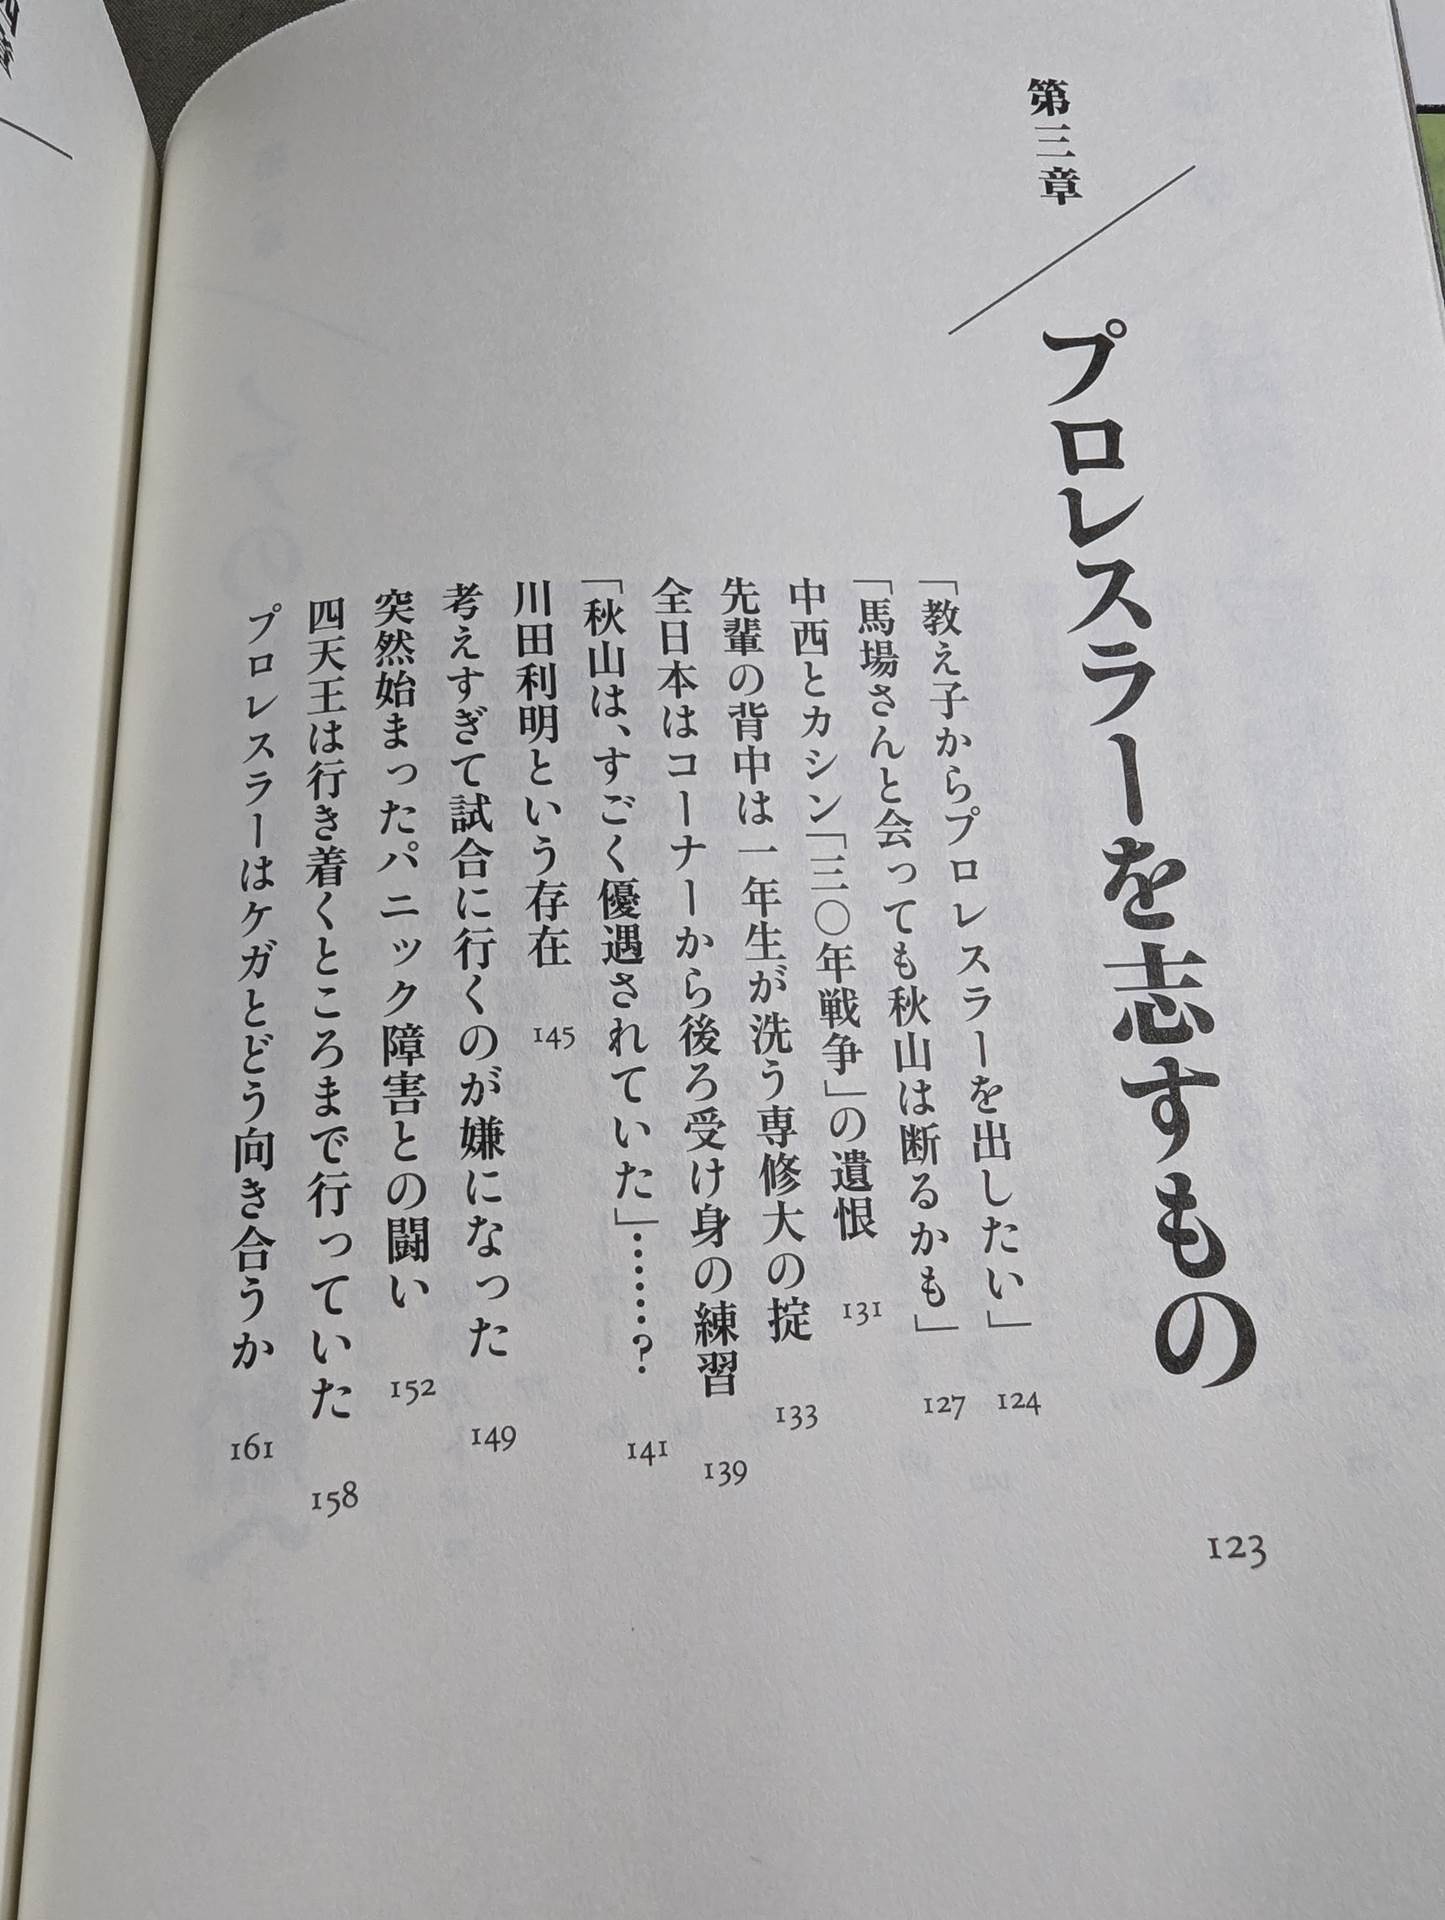 第三章
プロレスラーを志すもの 123
「教え子からプロレスラーを出したい」 124
「馬場さんと会っても秋山は断るかも」 127
中西とカシン「三〇年戦争」の遺恨 131
先輩の背中は一年生が洗う専修大の掟 133
全日本はコーナーから後ろ受け身の練習 139
「秋山は、すごく優遇されていた」……? 141
川田利明という存在 145
考えすぎて試合に行くのが嫌になった 149
突然始まったパニック障害との闘い 152
四天王は行き着くところまで行っていた 158
プロレスラーはケガとどう向き合うか 161